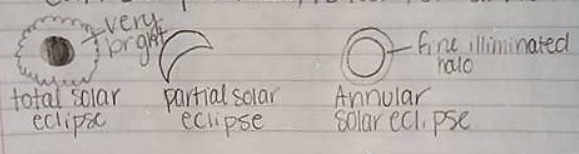 very
bright
fine illiminated
halo
total solar
eclipse
partial solar
eclipse
Annular
solar eclipse